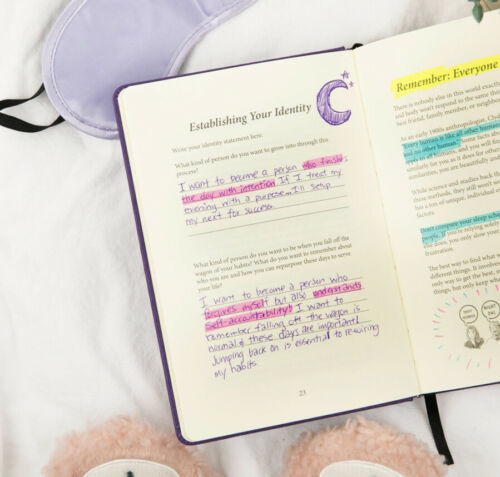 Establishing Your Identity
Write your identity statement here.
What kind of person do you want to grow into through this
process?
I want to become a person who finishes
the day with intention. If I treat my
evening with a purpose I'll setup
my next for success.
What kind of person do you want to be when you fall off the
wagon of your habits? What do you want to remember about
who you are and how you can repurpose these days to serve
your life?
I want to become a person who
forgives myself but also understands
self-accountability! I want to
remember falling off the wagon is
normal & these days are important!
Jumping back on is essential to rewiring
my habits.
23
Remember: Everyone
There is nobody else in this world exactly
and body won't respond to the same thin
best friend, family member, or neighbor
As an early 1900s anthropologist, Clyd
"Every human is like all other humans
and no other human." Some facts abou
apply to all humans, and you will find
similarly for you as it does for other
similarities, you are beautifully and
While science and studies back th
those methods, they still won't w
but a lot of unique, individual ci
factors.
Don't compare your sleep sche
people. If you're relying solely
else does, you only slow your
frustration.
The best way to find what w
different things. It involves
only way to get the bene
things, but only keep wh